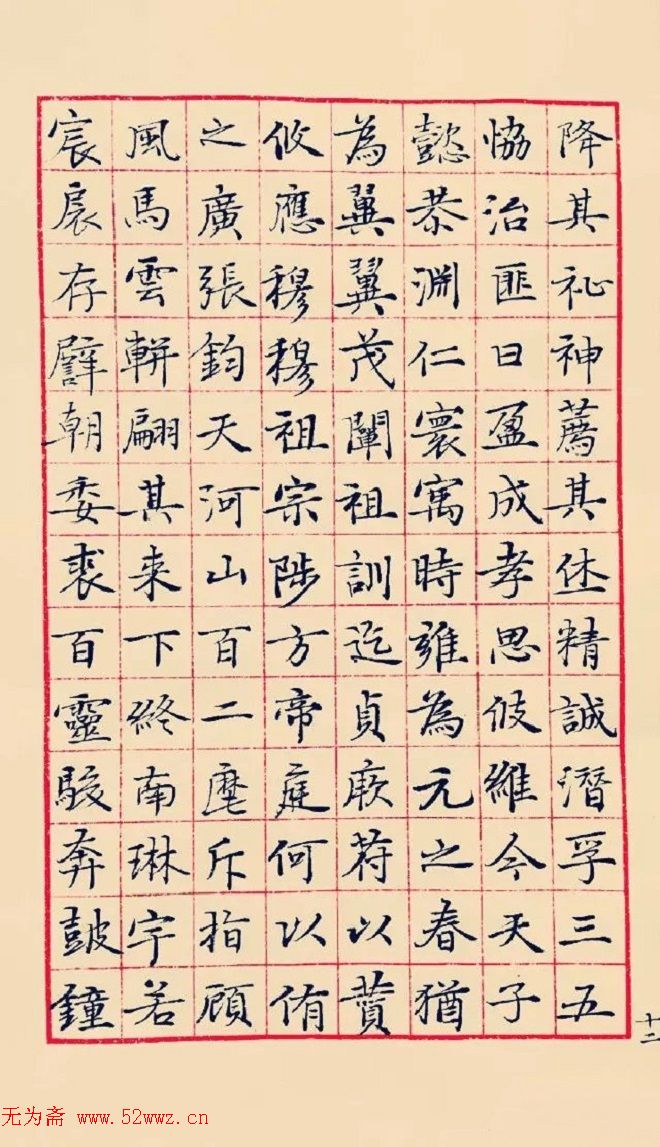 降其祉神薦其休精誠潛孚三五
恊治匪日盈成孝思攸維今天子
懿恭淵仁寰寓時雍為元之春猶
為翼翼茂闡祖訓迄貞厥符以賛
攸應穆穆祖宗陟方帝庭何以侑
之廣張鈞天河山百二麾斥指顧
風馬雲軿翩其来下終南琳宇若
宸扆存譬朝委裘百靈駿奔鼓鐘
十二
无为斋 www.52wwz.cn